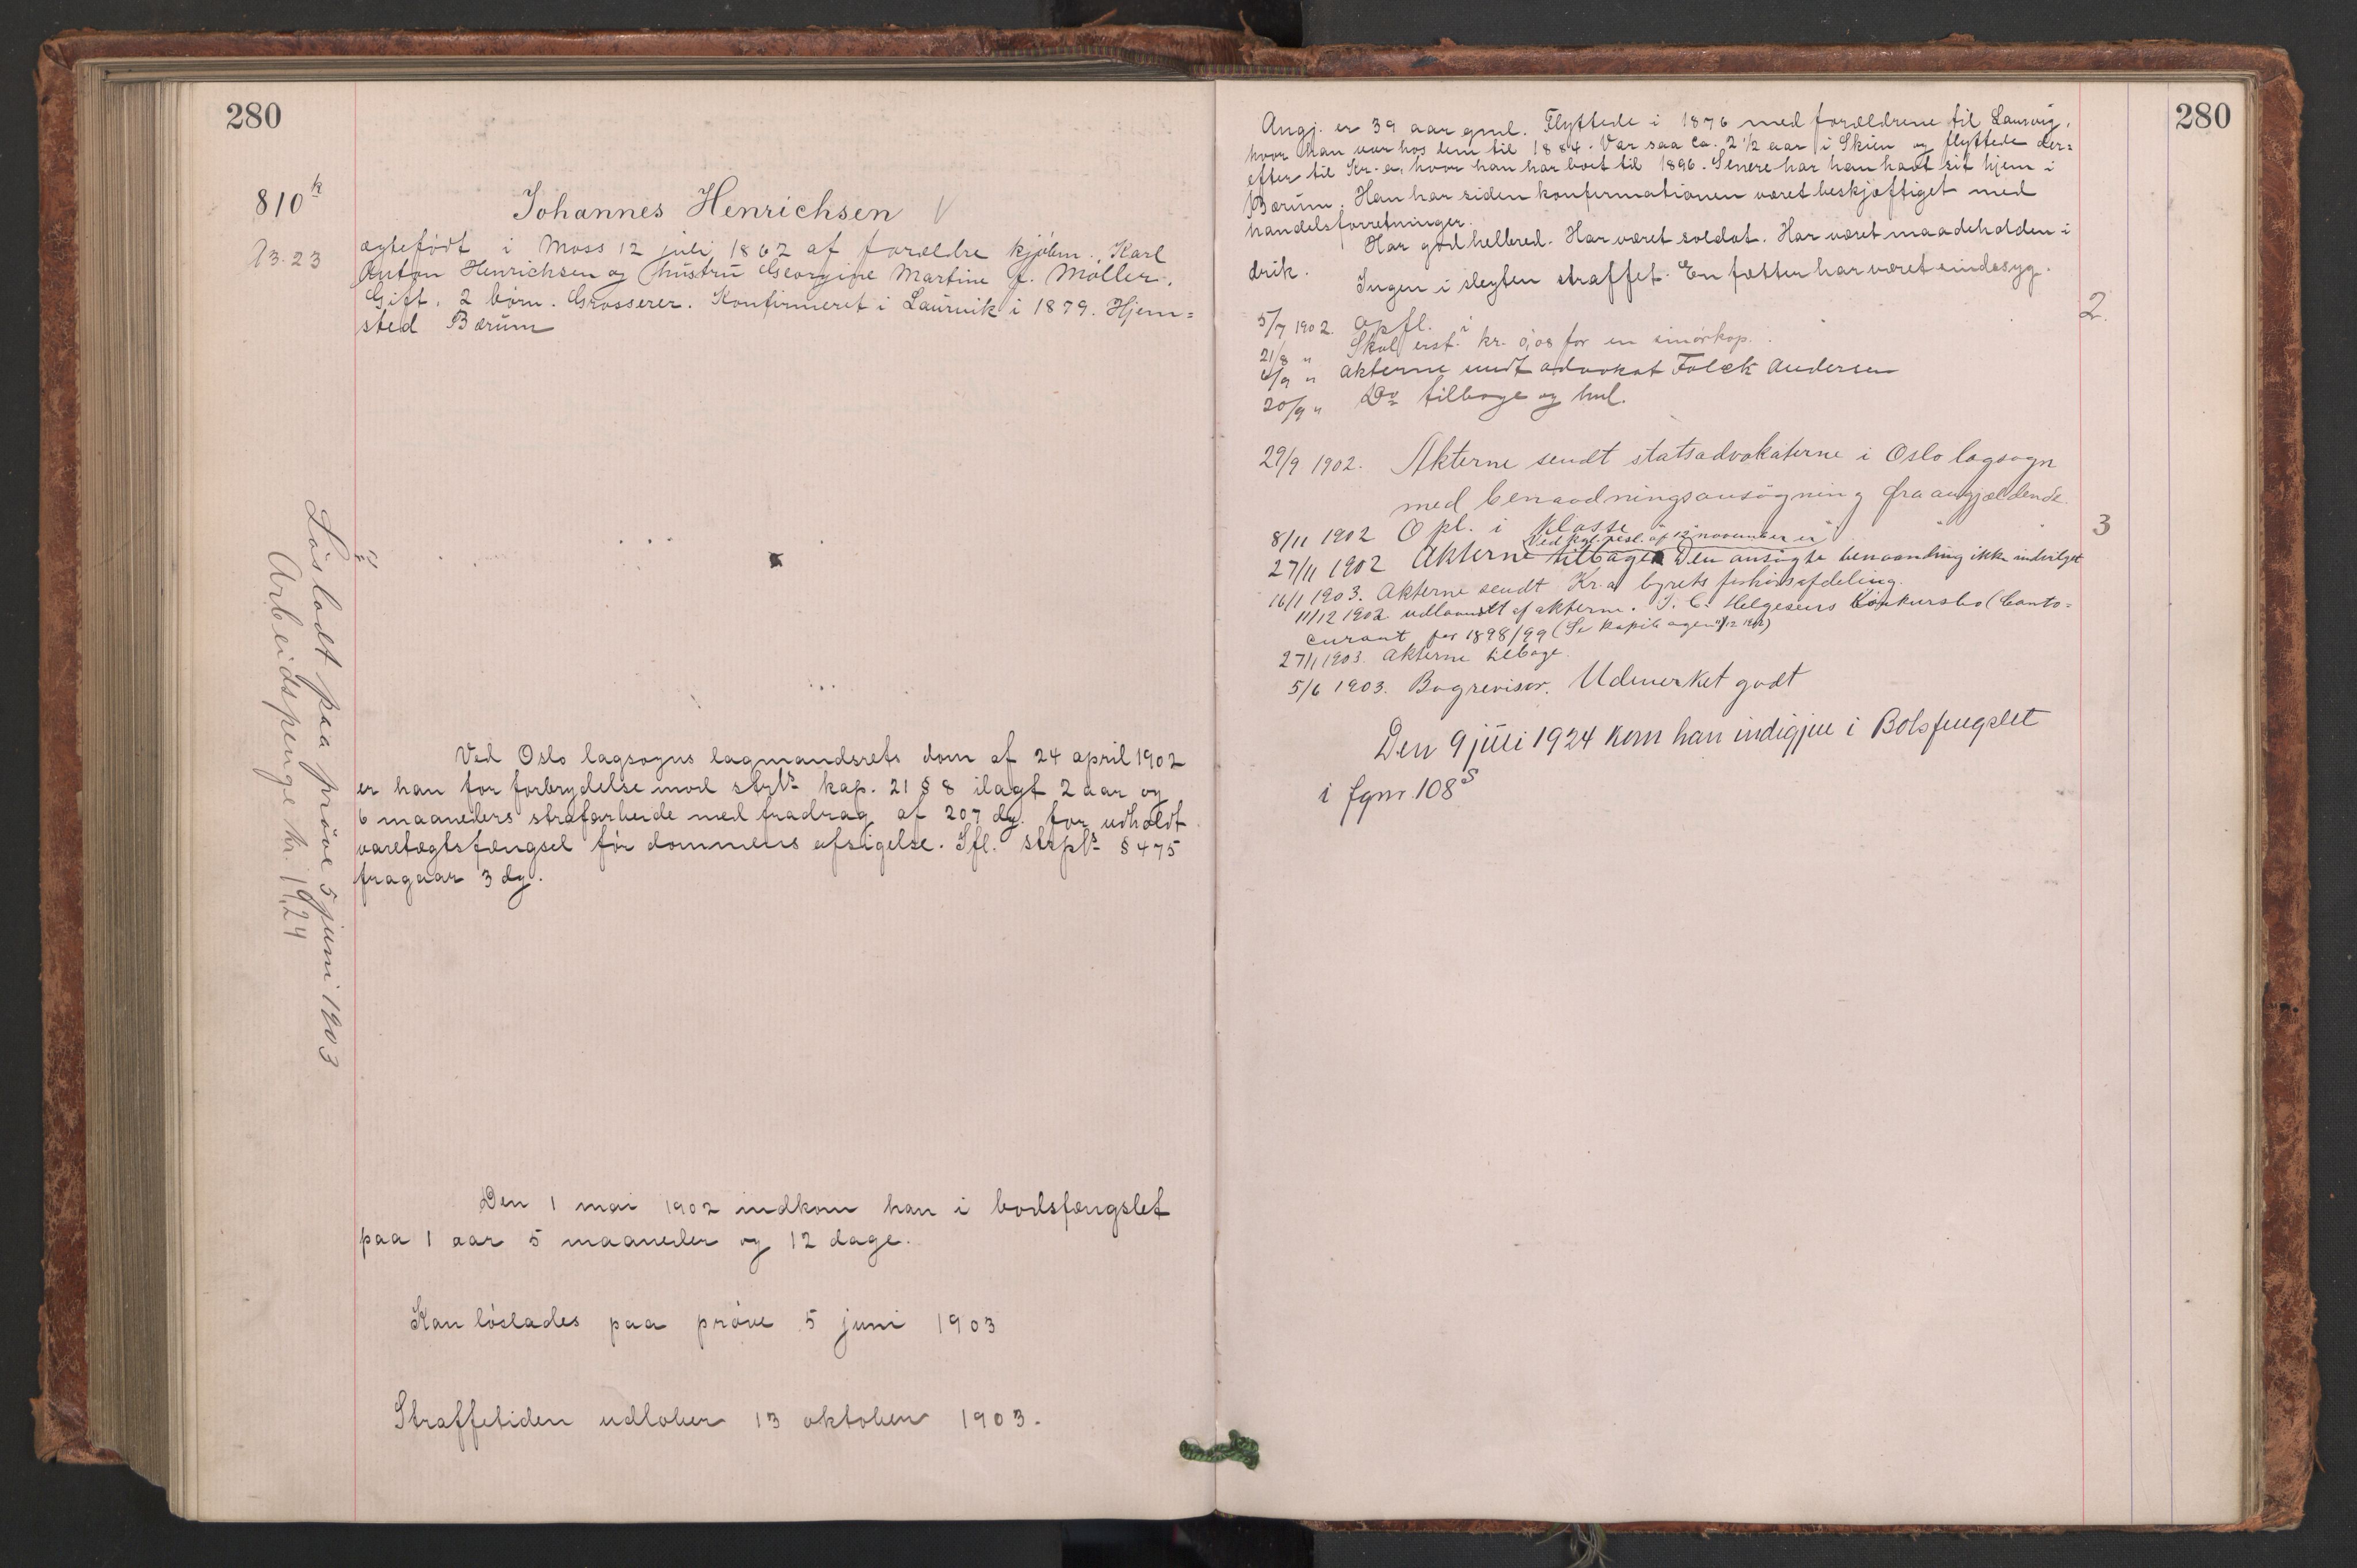 280
810 k
13.23
Johannes Henrichsen V
ægtefödt i Moss 12 juli 1862 af forældre kjöbm. Karl
Anton Henrichsen og hustru Georgine Martine f. Möller.
Gift. 2 börn. Grosserer. Konfirmeret i Laurvik i 1879. Hjem=
sted Bærum
Lösladt paa pröve 5 juni 1903
Arbeidspenge kr. 19,24
Ved Oslo lagsogns lagmandsrets dom af 24 april 1902
er han for forbrydelse mod strl. kap. 21 § 8 ilagt 2 aar og
6 maaneders strafarbeide med fradrag af 207 dg. for udholdt
varetægtsfængsel för dommens afsigelse. Ifl. strpl. § 475
fragaar 3 dg.
Den 1 mai 1902 indkom han i bodsfængslet
paa 1 aar 5 maaneder og 12 dage.
Kan löslades paa pröve 5 juni 1903
Straffetiden udlober 13 oktober 1903.
280
Angj. er 39 aar gml. Flyttede i 1876 med forældrene til Laurvig,
hvor han var hos dem til 1884. Var saa ca. 2 1/2 aar i Skien og flyttede der=
efter til Kr.a, hvor han har boet til 1896. Senere har han havt sit hjem i
Bærum. Han har siden konfirmationen været beskjæftiget med
handelsforretninger.
Har god helbred. Har været soldat. Har været maadeholden i
drik.
Ingen i slegten straffet. En fætter har været sindssyg.
5/7 1902. Opfl. i 2.
21/8 " Skal erst. kr. 0,08 for en smörkop.
6/9 " Akterne sendt advokat Falck Andersen
20/9 " Do tilbage og hml.
29/9 1902. Akterne sendt statsadvokaterne i Oslo lagsogn
med benaadningsansögning fra angjældende.
8/11 1902 Opl. i klasse 3
Ved kgl. resl. af 12 november er
27/11 1902 Akterne tilbage. Den ansögte benaadning ikke indvilget
16/1 1903. Akterne sendt Kr.a byrets forhörsafdeling.
11/12 1902 udlaandt af akterne. J. C. Helgesens konkursbo (Conto=
curant for 1898/99 (Se 11/12 1902)
27/1 1903. Akterne tilbage.
5/6 1903. Bogrevisor. Udmerket godt
Den 9 juli 1924 kom han indigjen i Botsfengslet
i fgnr. 108 S